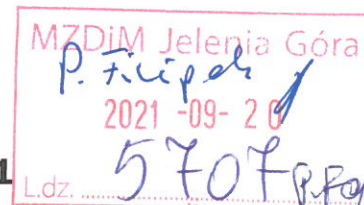 MZDiM Jelenia Góra
P. Filipek
2021 -09- 20
L.dz. 5707